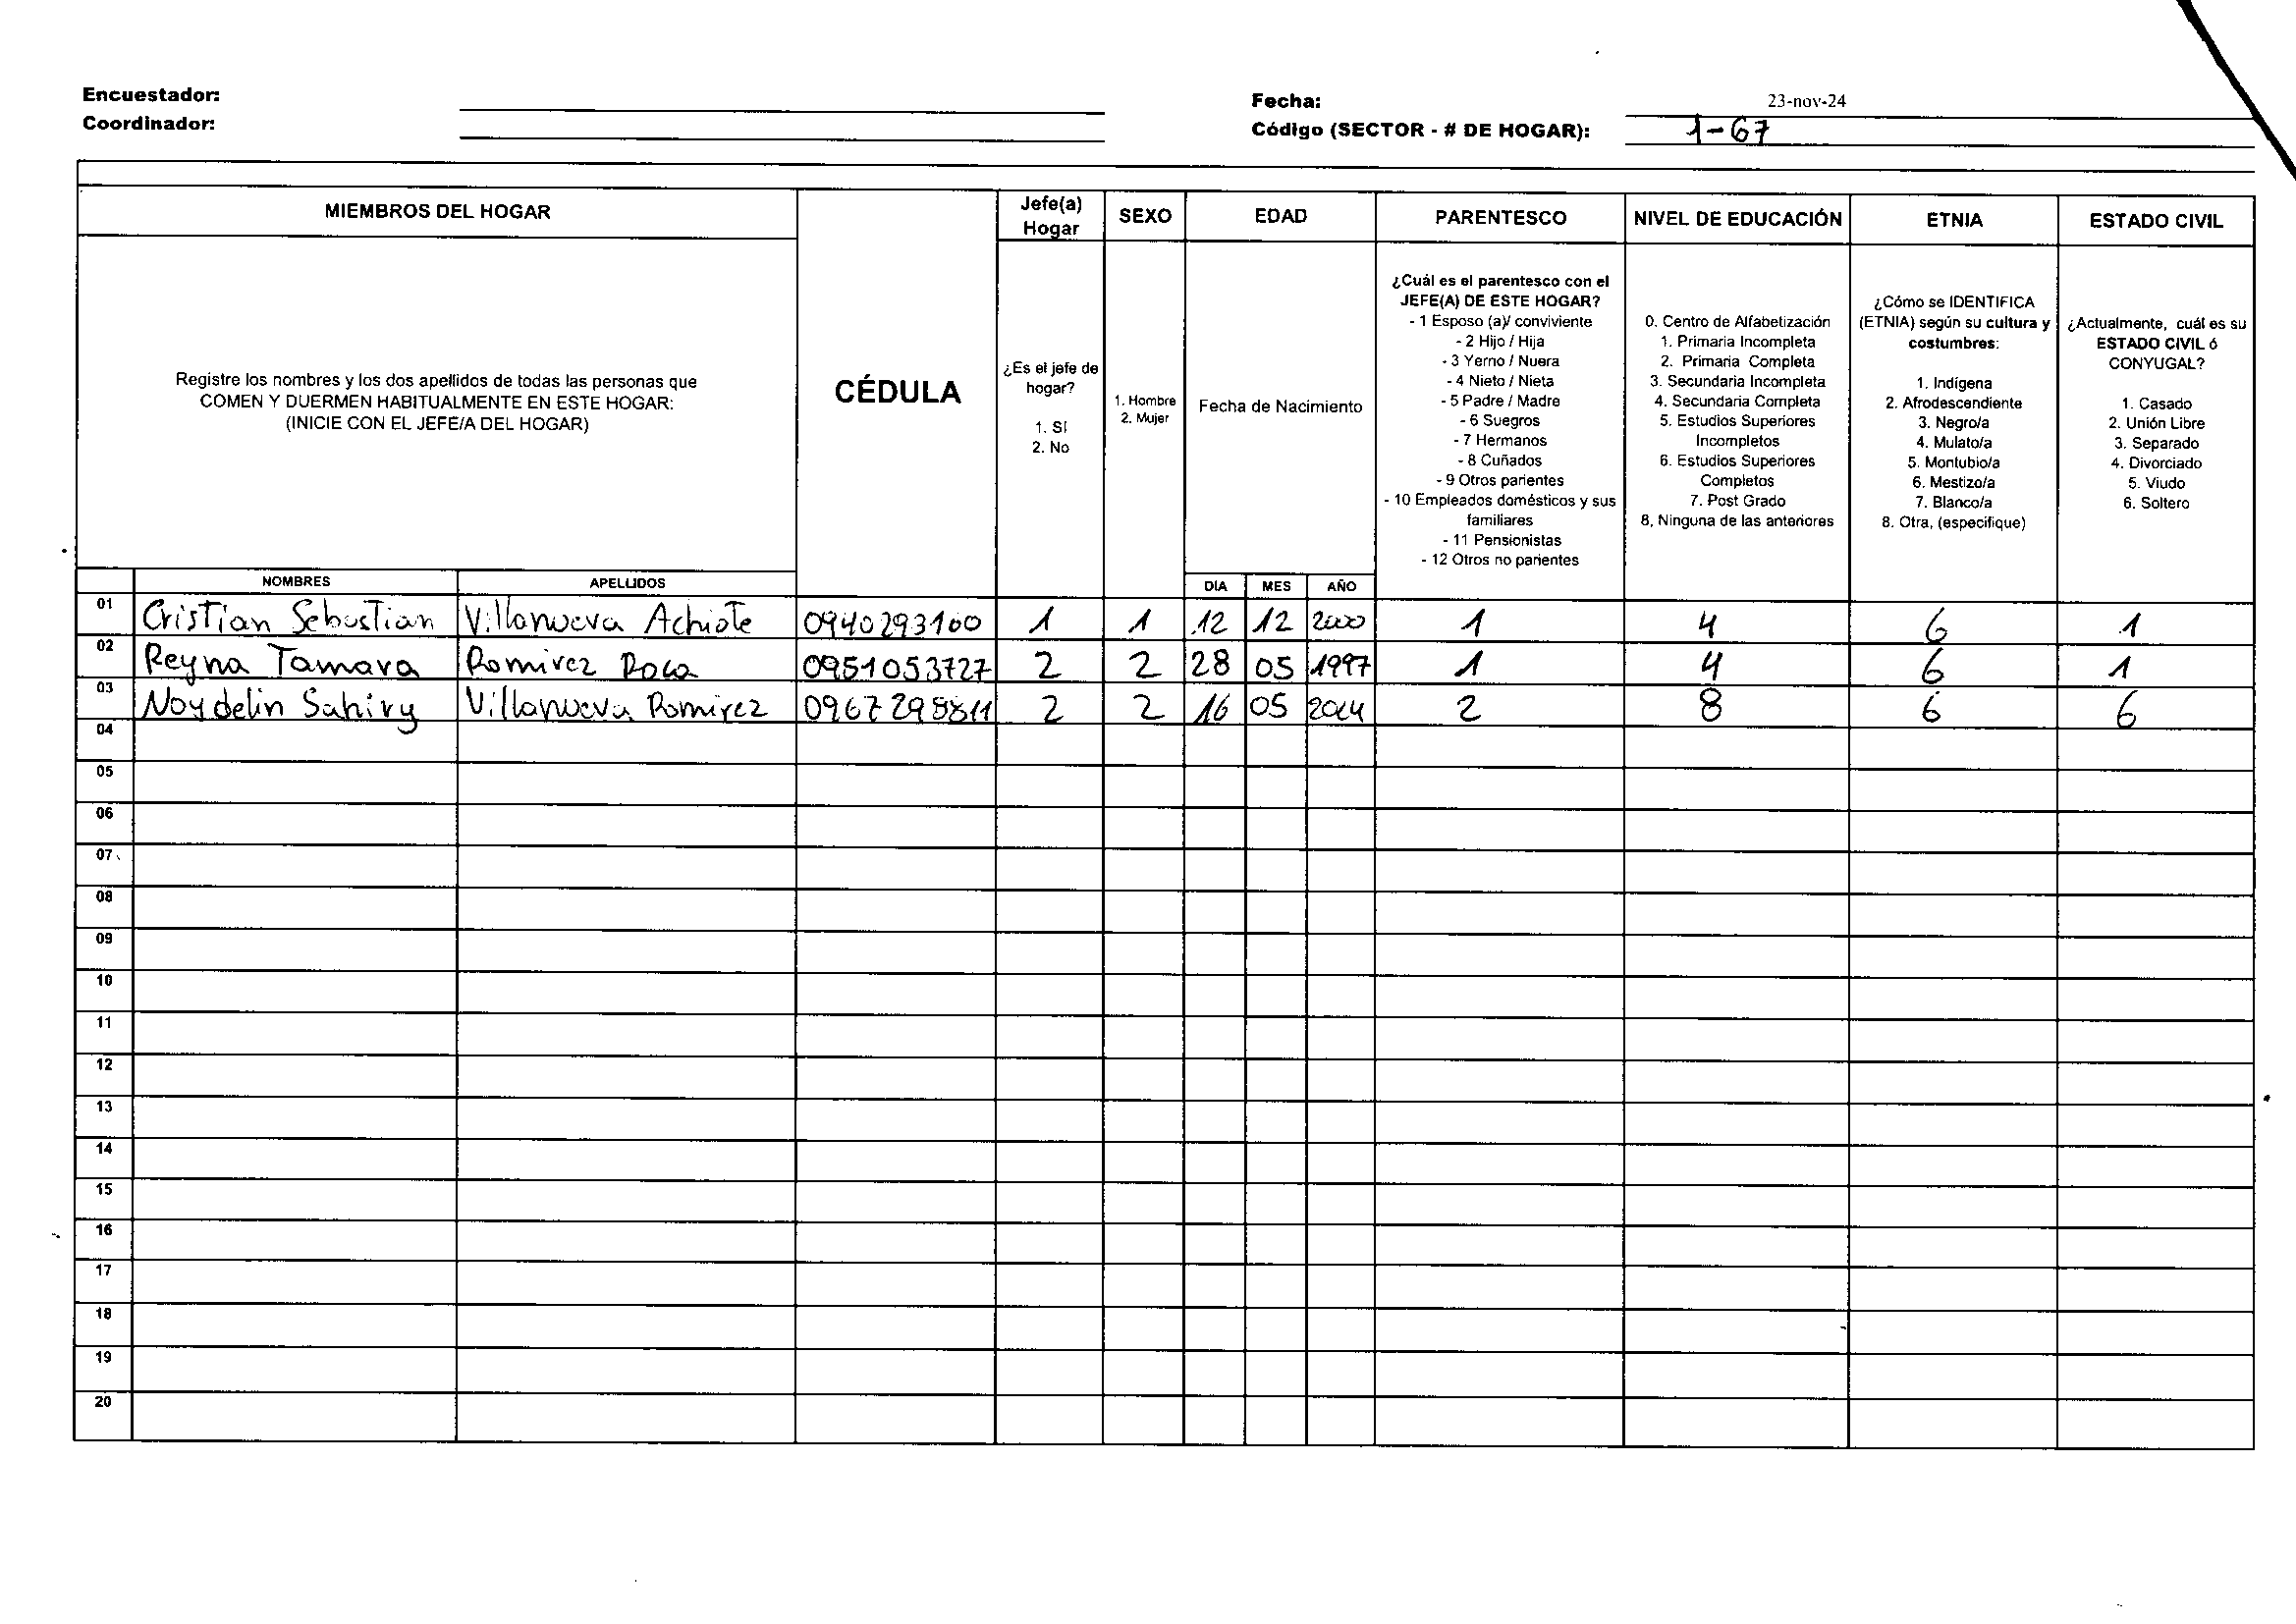 Encuestador:
Coordinador:
Fecha: 23-nov-24
Código (SECTOR - # DE HOGAR): 1-67
MIEMBROS DEL HOGAR
Registre los nombres y los dos apellidos de todas las personas que
COMEN Y DUERMEN HABITUALMENTE EN ESTE HOGAR:
(INICIE CON EL JEFE/A DEL HOGAR)
NOMBRES APELLIDOS
CÉDULA
Jefe(a)
Hogar
¿Es el jefe de
hogar?
1. SI
2. No
SEXO
1. Hombre
2. Mujer
EDAD
Fecha de Nacimiento
DIA MES AÑO
PARENTESCO
¿Cuál es el parentesco con el
JEFE(A) DE ESTE HOGAR?
- 1 Esposo (a)/ conviviente
- 2 Hijo / Hija
- 3 Yerno / Nuera
- 4 Nieto / Nieta
- 5 Padre / Madre
- 6 Suegros
- 7 Hermanos
- 8 Cuñados
- 9 Otros parientes
- 10 Empleados domésticos y sus
familiares
- 11 Pensionistas
- 12 Otros no parientes
NIVEL DE EDUCACIÓN
0. Centro de Alfabetización
1. Primaria Incompleta
2. Primaria Completa
3. Secundaria Incompleta
4. Secundaria Completa
5. Estudios Superiores
Incompletos
6. Estudios Superiores
Completos
7. Post Grado
8, Ninguna de las anteriores
ETNIA
¿Cómo se IDENTIFICA
(ETNIA) según su cultura y
costumbres:
1. Indígena
2. Afrodescendiente
3. Negro/a
4. Mulato/a
5. Montubio/a
6. Mestizo/a
7. Blanco/a
8. Otra, (especifique)
ESTADO CIVIL
¿Actualmente, cuál es su
ESTADO CIVIL ó
CONYUGAL?
1. Casado
2. Unión Libre
3. Separado
4. Divorciado
5. Viudo
6. Soltero
01 Cristian Sebastian Villanueva Achiote 0940293100 1 1 12 12 2000 1 4 6 1
02 Reyna Tamara Ramirez Roca 0951053727 2 2 28 05 1997 1 4 6 1
03 Noydelin Sahiry Villanueva Ramirez 2 2 16 05 2 8 6 6
04
05
06
07
08
09
10
11
12
13
14
15
16
17
18
19
20